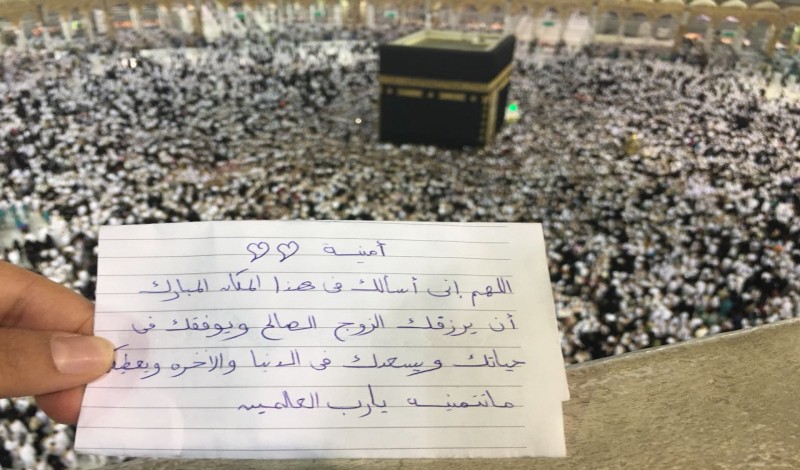 أمنيــة ♡♡
اللهم إنى أسألك فى هذا المكان المبارك
أن يرزقك الزوج الصالح ويوفقك فى
حياتك ويسعدك فى الدنيا والآخره ويعطيك
ماتتمنينه يارب العالمين